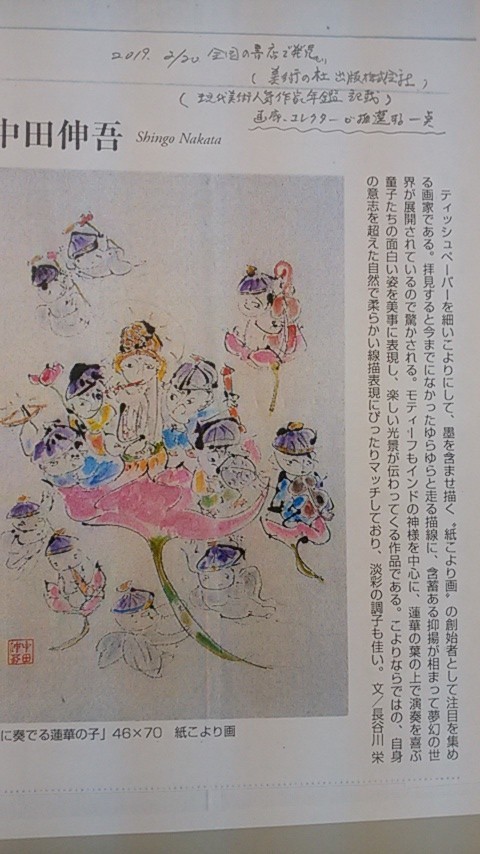 2019. 2/20 全国の書店で発売。
(美術の杜 出版株式会社)
(現代美術人気作家年鑑 記載)
画廊、コレクターが推選する一点
中田伸吾 Shingo Nakata
ティッシュペーパーを細いこよりにして、墨を含ませ描く〝紙こより画〟の創始者として注目を集め
る画家である。拝見すると今までになかったゆらゆらと走る描線に、含蓄ある抑揚が相まって夢幻の世
界が展開されているので驚かされる。モティーフもインドの神様を中心に、蓮華の葉の上で演奏を喜ぶ
童子たちの面白い姿を美事に表現し、楽しい光景が伝わってくる作品である。こよりならではの、自身
の意志を超えた自然で柔らかい線描表現にぴったりマッチしており、淡彩の調子も佳い。 文／長谷川 栄
中田
伸吾
に奏でる蓮華の子」46×70 紙こより画